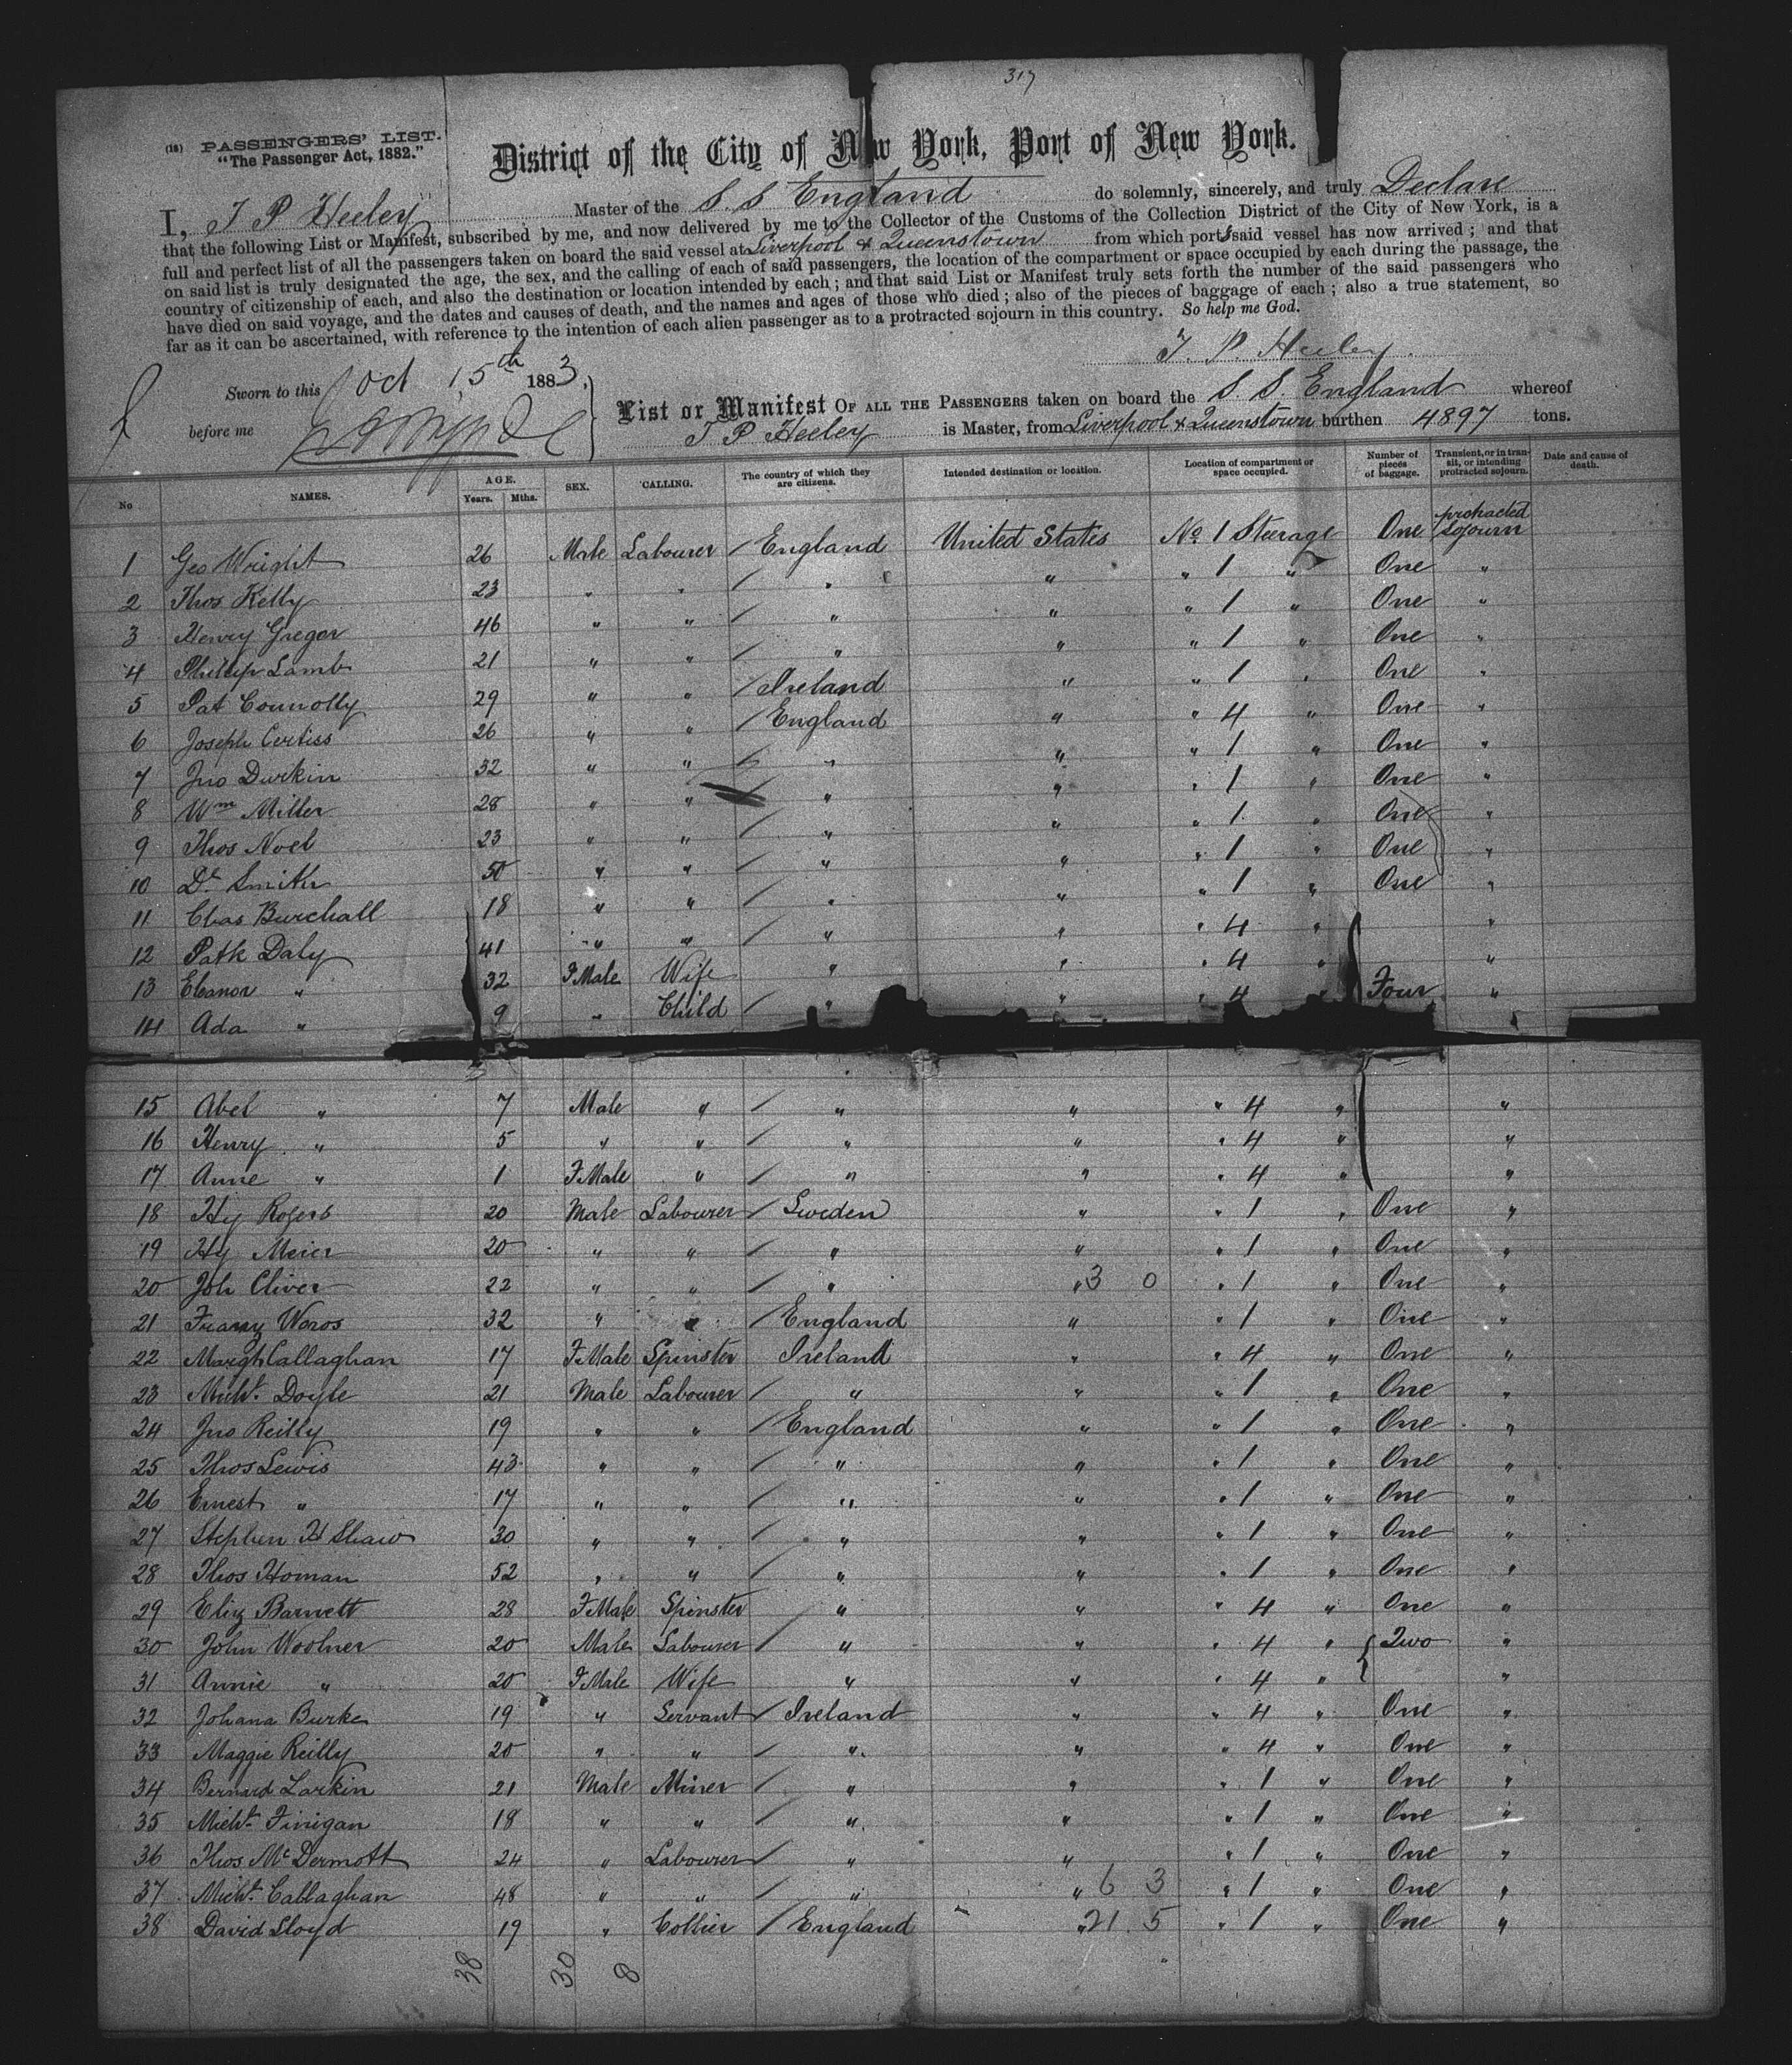 317
(18) PASSENGERS' LIST.
"The Passenger Act, 1882."
District of the City of New York, Port of New York.
I, T P Heeley Master of the S. S England do solemnly, sincerely, and truly Declare
that the following List or Manifest, subscribed by me, and now delivered by me to the Collector of the Customs of the Collection District of the City of New York, is a
full and perfect list of all the passengers taken on board the said vessel at Liverpool & Queenstown from which ports said vessel has now arrived; and that
on said list is truly designated the age, the sex, and the calling of each of said passengers, the location of the compartment or space occupied by each during the passage, the
country of citizenship of each, and also the destination or location intended by each; and that said List or Manifest truly sets forth the number of the said passengers who
have died on said voyage, and the dates and causes of death, and the names and ages of those who died; also of the pieces of baggage of each; also a true statement, so
far as it can be ascertained, with reference to the intention of each alien passenger as to a protracted sojourn in this country. So help me God.
T. P. Heeley
Sworn to this Oct 15th 1883,
before me
List or Manifest OF ALL THE PASSENGERS taken on board the S. S. England whereof
T P Heeley is Master, from Liverpool & Queenstown burthen 4897 tons.
No NAMES. AGE. Years. Mths. SEX. CALLING. The country of which they are citizens. Intended destination or location. Location of compartment or space occupied. Number of pieces of baggage. Transient, or in transit, or intending protracted sojourn. Date and cause of death.
1 Geo Wright 26 Male Labourer / England United States No. 1 Steerage One protracted Sojourn
2 Thos Kelly 23 " " / " " " 1 " One "
3 Henry Gregor 46 " " / " " " 1 " One "
4 Phillip Lamb 21 " " / " " " 1 " One "
5 Pat Connolly 29 " " / Ireland " " 1 " One "
6 Joseph Certiss 26 " " / England " " 4 " One "
7 Jno Durkin 32 " " / " " " 1 " One "
8 Wm Miller 28 " " / " " " 1 " One "
9 Thos Noel 23 " " / " " " 1 " One "
10 Dl Smith 50 " " / " " " 1 " One "
11 Chas Burchall 18 " " / " " " 1 " One "
12 Patk Daly 41 " " / " " " 4 " "
13 Eleanor " 32 F Male Wife " " " 4 " "
14 Ada " 9 " Child / " " " 4 " Four "
15 Abel " 7 Male " / " " " 4 " "
16 Henry " 5 " " / " " " 4 " "
17 Anne " 1 F Male " / " " " 4 " "
18 Hy Rogers 20 Male Labourer / Sweden " " 1 " One "
19 Hy Meier 20 " " / " " " 1 " One "
20 Joh Cliver 22 " " / " " 3 0 " 1 " One "
21 Franz Woros 32 " " / England " " 1 " One "
22 Margh Callaghan 17 F Male Spinster Ireland " " 4 " One "
23 Michl. Doyle 21 Male Labourer / " " " 1 " One "
24 Jno Reilly 19 " " / England " " 1 " One "
25 Thos Lewis 43 " " / " " " 1 " One "
26 Ernest " 17 " " / " " " 1 " One "
27 Stephen H Shaw 30 " " / " " " 1 " One "
28 Thos Homan 52 " " / " " " 1 " One "
29 Eliz Barnett 28 F Male Spinster " " " 4 " One "
30 John Woolner 20 Male Labourer / " " " 4 " Two "
31 Annie " 20 F Male Wife " " " 4 " "
32 Johana Burke 19 " Servant / Ireland " " 4 " One "
33 Maggie Reilly 20 " " / " " " 4 " One "
34 Bernard Larkin 21 Male Miner / " " " 1 " One "
35 Michl. Finigan 18 " " / " " " 1 " One "
36 Thos McDermott 24 " Labourer / " " " 1 " One "
37 Michl. Callaghan 48 " " / " " 6 3 " 1 " One "
38 David Lloyd 19 " Collier / England " 21 5 " 1 " One "
38 30 8